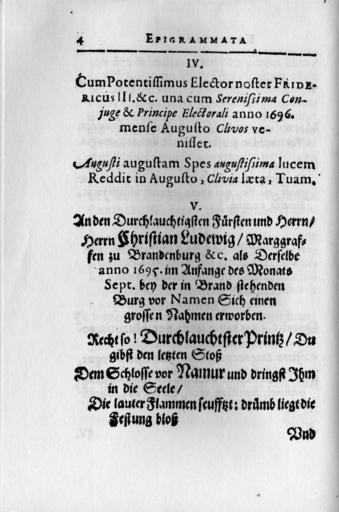 4 EPIGRAMMATA
IV.
Cum Potentissimus Elector noster FRIDE-
RICUS III. &c. una cum Serenissima Con-
juge & Principe Electorali anno 1696.
mense Augusto Clivos ve-
nisset.
Augusti augustam Spes augustissima lucem
Reddit in Augusto, Clivia læta, Tuam.
V.
An den Durchlauchtigsten Fürsten und Herrn/
Herrn Christian Ludewig/ Marggraf-
fen zu Brandenburg &c. als Derselbe
anno 1695. im Anfange des Monats
Sept. bey der in Brand stehenden
Burg vor Namen Sich einen
grossen Nahmen erworben.
Recht so! Durchlauchtster Printz/ Du
gibst den letzten Stoß
Dem Schlosse vor Namur und dringst Ihm
in die Seele/
Die lauter Flammen seufftzt; drümb liegt die
Festung bloß
Und